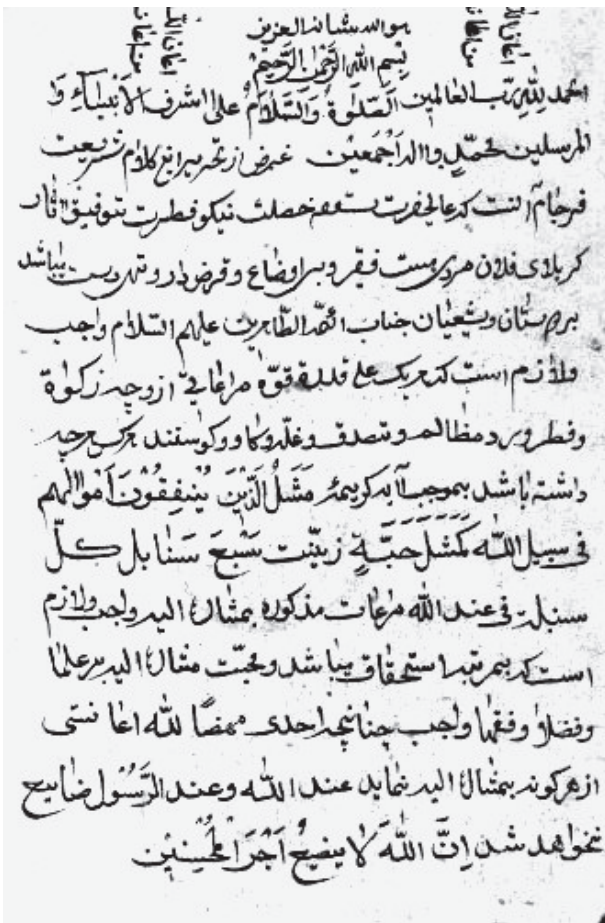 هو الله شانه العزیز
بسم الله الرحمن الرحیم
الحمد لله رب العالمین الصلوة والسلام علی اشرف الانبیاء و
المرسلین محمد واله اجمعین غرض از تحریر این کلام شریعت
فرجام آنست که عالیحضرت خصلت نیکو فطرت توفیق آثار
کربلای فلان مردی هست فقیر و بی اوضاع و قرض دار و تهی دست میباشد
بر دوستان و شیعیان جناب ائمه الطاهرین علیهم السلام واجب
و لازم است که هر یک علی قدر قوة مراعاتی از وجه زکوة
و فطره و رد مظالم و تصدق و غله و کاو و کوسفند هر کس هرچه
داشته باشد بموجب آیه کریمه مَثَلُ الَّذِیْنَ یُنْفِقُوْنَ اَمْوالهم
فی سبیل الله كَمَثَلِ حَبَّةٍ انبتت سَبْعَ سَنابل کلّ
سنبلة فی عند الله مراعات مذکوره بمثال الیه واجب و لازم
است که بمرتبه استحقاق میباشد و محبت مثال الیه بر علما
و فضلا و فقها واجب چنانچه احدی ممضًا لله اعانتی
از هر کونه بمثال الیه نماید عند الله و عند الرَّسُول ضایع
نخواهد شد اِنَّ اللهَ لا یضیعُ اَجْرَ المحسنین